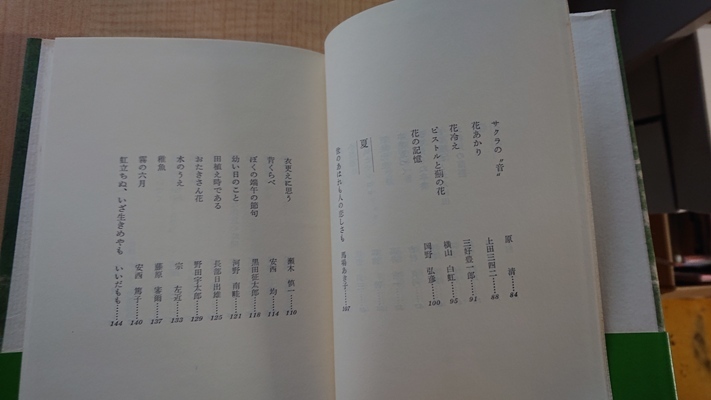 サクラの“音” 原 清……84
花あかり 上田三四二……88
花冷え 三好豊一郎……91
ピストルと梨の花 横山 白虹……95
花の記憶 岡野 弘彦……100
夏
蛍のあはれも人の恋しさも 馬場あき子……107
衣更えに思う 楠木 慎一……110
背くらべ 安西 均……114
ぼくの端午の節句 黒田征太郎……118
幼い日のこと 河野 南畦……121
田植え時である 長部日出雄……125
おたきさん花 野田宇太郎……129
水のうえ 宗 左近……133
稚魚 藤原 審爾……137
霧の六月 安西 篤子……140
虹立ちぬ、いざ生きめやも いいだもも……144